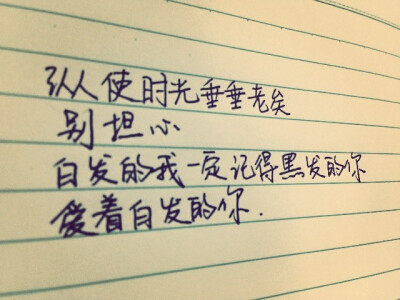 纵使时光垂垂老矣
别担心
白发的我一定记得黑发的你
爱着白发的你.